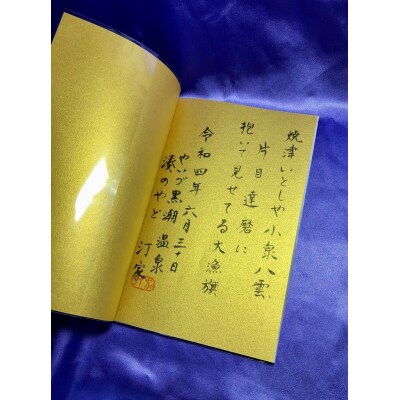 焼津いとしや小泉八雲
片目達磨に
抱いて見せてる大漁旗
令和四年六月三十日
やいづ黒潮温泉
湊のやど 汀家